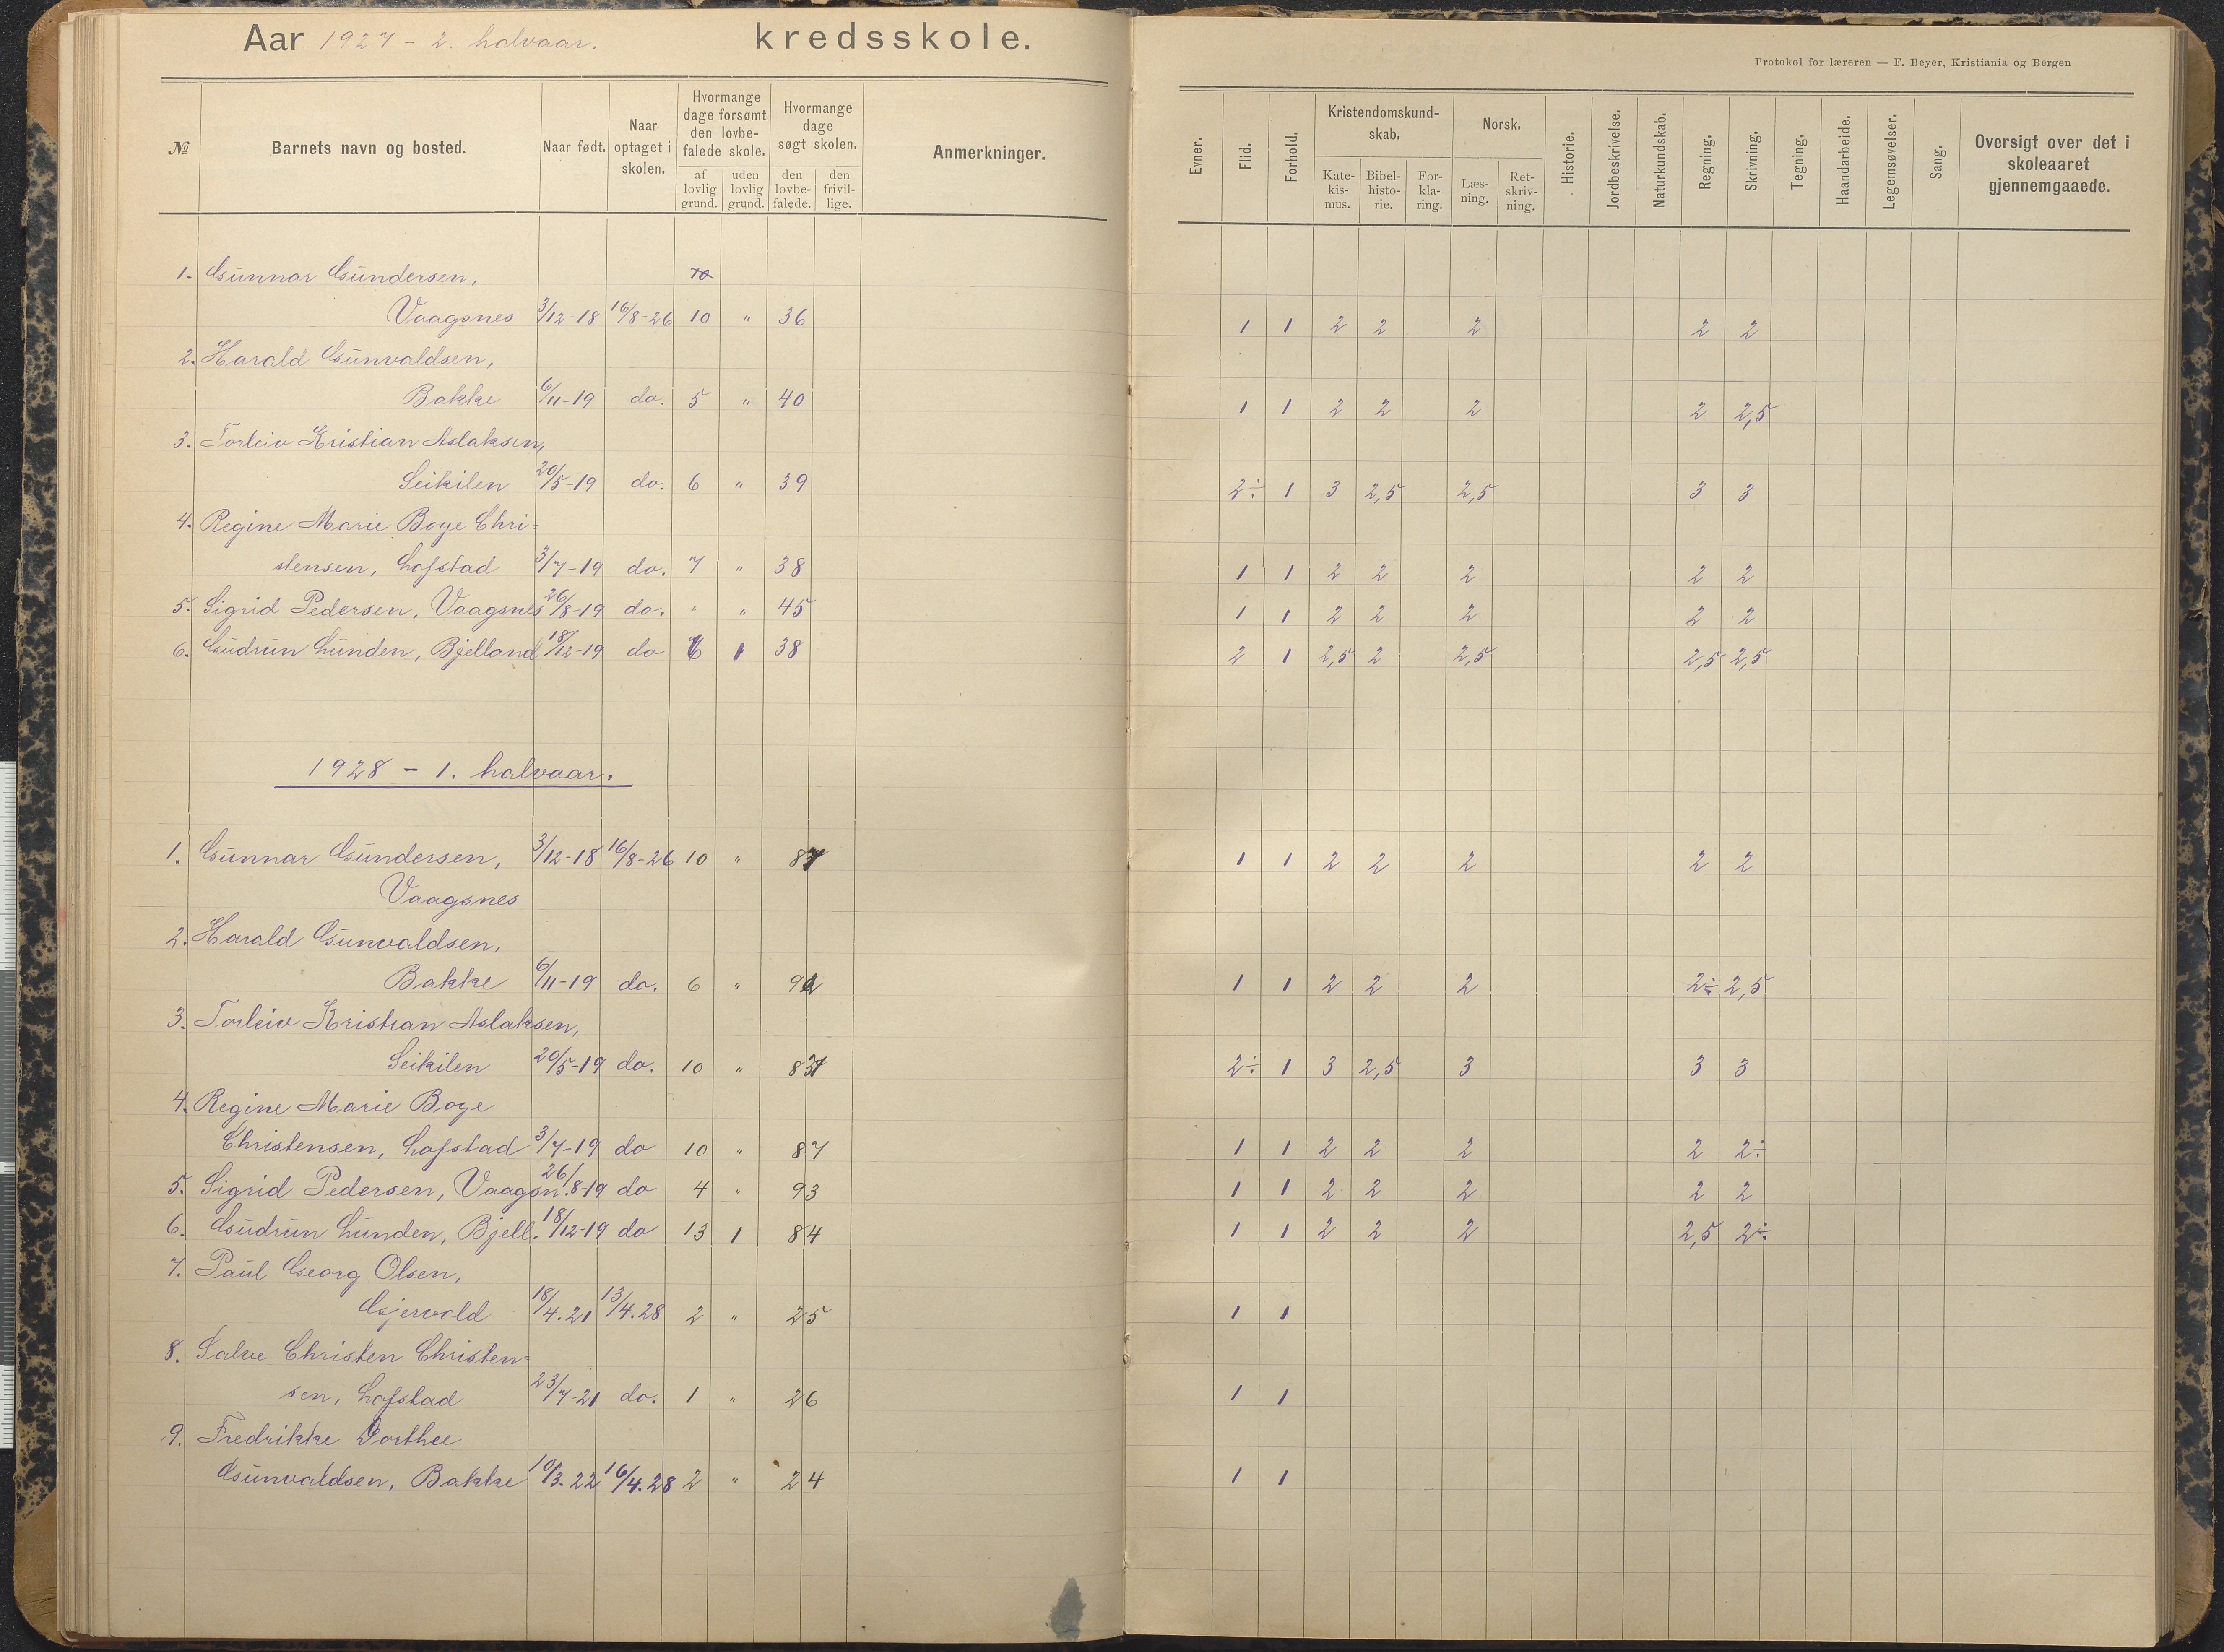 Aar 1927 - 2. halvaar. kredsskole.
Protokol for læreren — F. Beyer, Kristiania og Bergen
№ Barnets navn og bosted. Naar født. Naar optaget i skolen. Hvormange dage forsømt den lovbefalede skole. af lovlig grund. uden lovlig grund. Hvormange dage søgt skolen. den lovbefalede. den frivillige. Anmerkninger. Evner. Flid. Forhold. Kristendomskundskab. Katekismus. Bibelhistorie. Forklaring. Norsk. Læsning. Retskrivning. Historie. Jordbeskrivelse. Naturkundskab. Regning. Skrivning. Tegning. Haandarbeide. Legemsøvelser. Sang. Oversigt over det i skoleaaret gjennemgaaede.
1. Gunnar Gundersen, 10
Vaagsnes 3/12-18 16/8-26 10 " 36 1 1 2 2 2 2 2
2. Harald Gunvaldsen,
Bakke 6/11-19 do. 5 " 40 1 1 2 2 2 2 2,5
3. Torleiv Kristian Aslaksen,
Leikilen 20/5-19 do. 6 " 39 2÷ 1 3 2,5 2,5 3 3
4. Regine Marie Boye Chri=
stensen, Lofstad 3/7-19 do. 7 " 38 1 1 2 2 2 2 2
5. Sigrid Pedersen, Vaagsnes 26/8-19 do. " " 45 1 1 2 2 2 2 2
6. Gudrun Lunden, Bjelland 18/12-19 do 6 1 38 2 1 2,5 2 2,5 2,5 2,5
1928 - 1. halvaar.
1. Gunnar Gundersen, 3/12-18 16/8-26 10 " 1 1 2 2 2 2 2
Vaagsnes
2. Harald Gunvaldsen,
Bakke 6/11-19 do. 6 " 1 1 2 2 2 2÷ 2,5
3. Torleiv Kristian Aslaksen,
Leikilen 20/5-19 do. 10 " 2÷ 1 3 2,5 3 3 3
4. Regine Marie Boye
Christensen, Lofstad 3/7-19 do 10 " 87 1 1 2 2 2 2 2÷
5. Sigrid Pedersen, Vaagsn. 26/8-19 do 4 " 93 1 1 2 2 2 2 2
6. Gudrun Lunden, Bjell. 18/12-19 do 13 1 84 1 1 2 2 2 2,5 2÷
7. Paul Georg Olsen,
Gjervold 18/4.21 13/4.28 2 " 25 1 1
8. Salve Christen Christen=
sen, Lofstad 23/7-21 do. 1 " 26 1 1
9. Fredrikke Dorthee
Gunvaldsen, Bakke 10/3.22 16/4.28 2 " 24 1 1